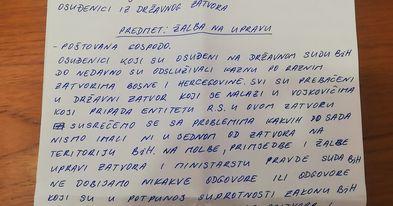 OSUĐENICI IZ DRŽAVNOG ZATVORA
PREDMET: ŽALBA NA UPRAVU
- POŠTOVANA GOSPODO.
OSUĐENICI KOJI SU OSUĐENI NA DRŽAVNOM SUDU BIH
DO NEDAVNO SU ODSLUŽIVALI KAZNU PO RAZNIM
ZATVORIMA BOSNE I HERCEGOVINE. SVI SU PREBAČENI
U DRŽAVNI ZATVOR KOJI SE NALAZI U VOJKOVIĆIMA
KOJI PRIPADA ENTITETU R.S. U OVOM ZATVORU
SUSREĆEMO SE SA PROBLEMIMA KAKVIH DO SADA
NISMO IMALI NI U JEDNOM OD ZATVORA NA
TERITORIJU BIH. NA MOLBE, PRIMJEDBE I ŽALBE
UPRAVI ZATVORA I MINISTARSTVU PRAVDE SUDA BIH
NE DOBIJAMO NIKAKVE ODGOVORE ILI ODGOVORE
KOJI SU U POTPUNOJ SUPROTNOSTI ZAKONU BIH